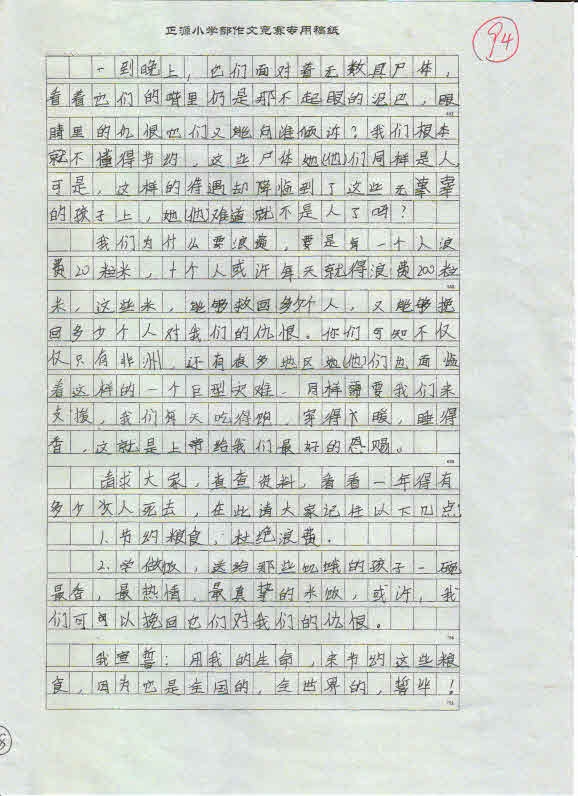 正源小学部作文竞赛专用稿纸
94
一到晚上，他们面对着无数具尸体，
看着他们的嘴里仍是那不起眼的泥巴，眼
睛里的仇恨他们又能向谁倾诉？我们根本
就不懂得节约，这些尸体她(他)们同样是人，
可是，这样的待遇却降临到了这些无辜
的孩子上，她(他)难道就不是人了吗？
我们为什么要浪费，要是每一个人浪
费20粒米，十个人或许每天就得浪费200粒
米，这些米，能够救回多少个人，又能够挽
回多少个人对我们的仇恨。你们可知不仅
仅只有非洲，还有很多地区她(他)们也面临
着这样的一个巨型灾难，同样需要我们来
支援，我们每天吃得饱，穿得暖，睡得
香，这就是上帝给我们最好的恩赐。
请求大家，查查资料，看看一年得有
多少次人死去，在此请大家记住以下几点
1.节约粮食，杜绝浪费。
2.学做饭，送给那些饥饿的孩子一碗
最香，最热情，最真挚的米饭，或许，我
们可以挽回他们对我们的仇恨。
我宣誓：用我的生命，来节约这些粮
食，因为它是全国的，全世界的，誓毕！